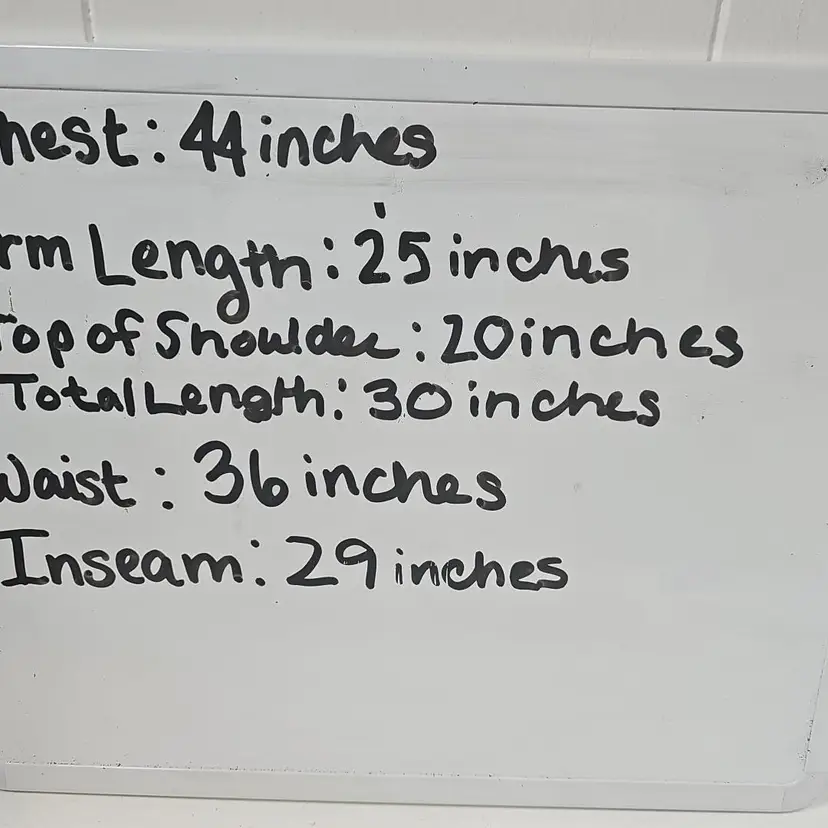 hest: 44 inches
rm Length: 25 inches
Top of Shoulder: 20 inches
Total Length: 30 inches
Waist: 36 inches
Inseam: 29 inches